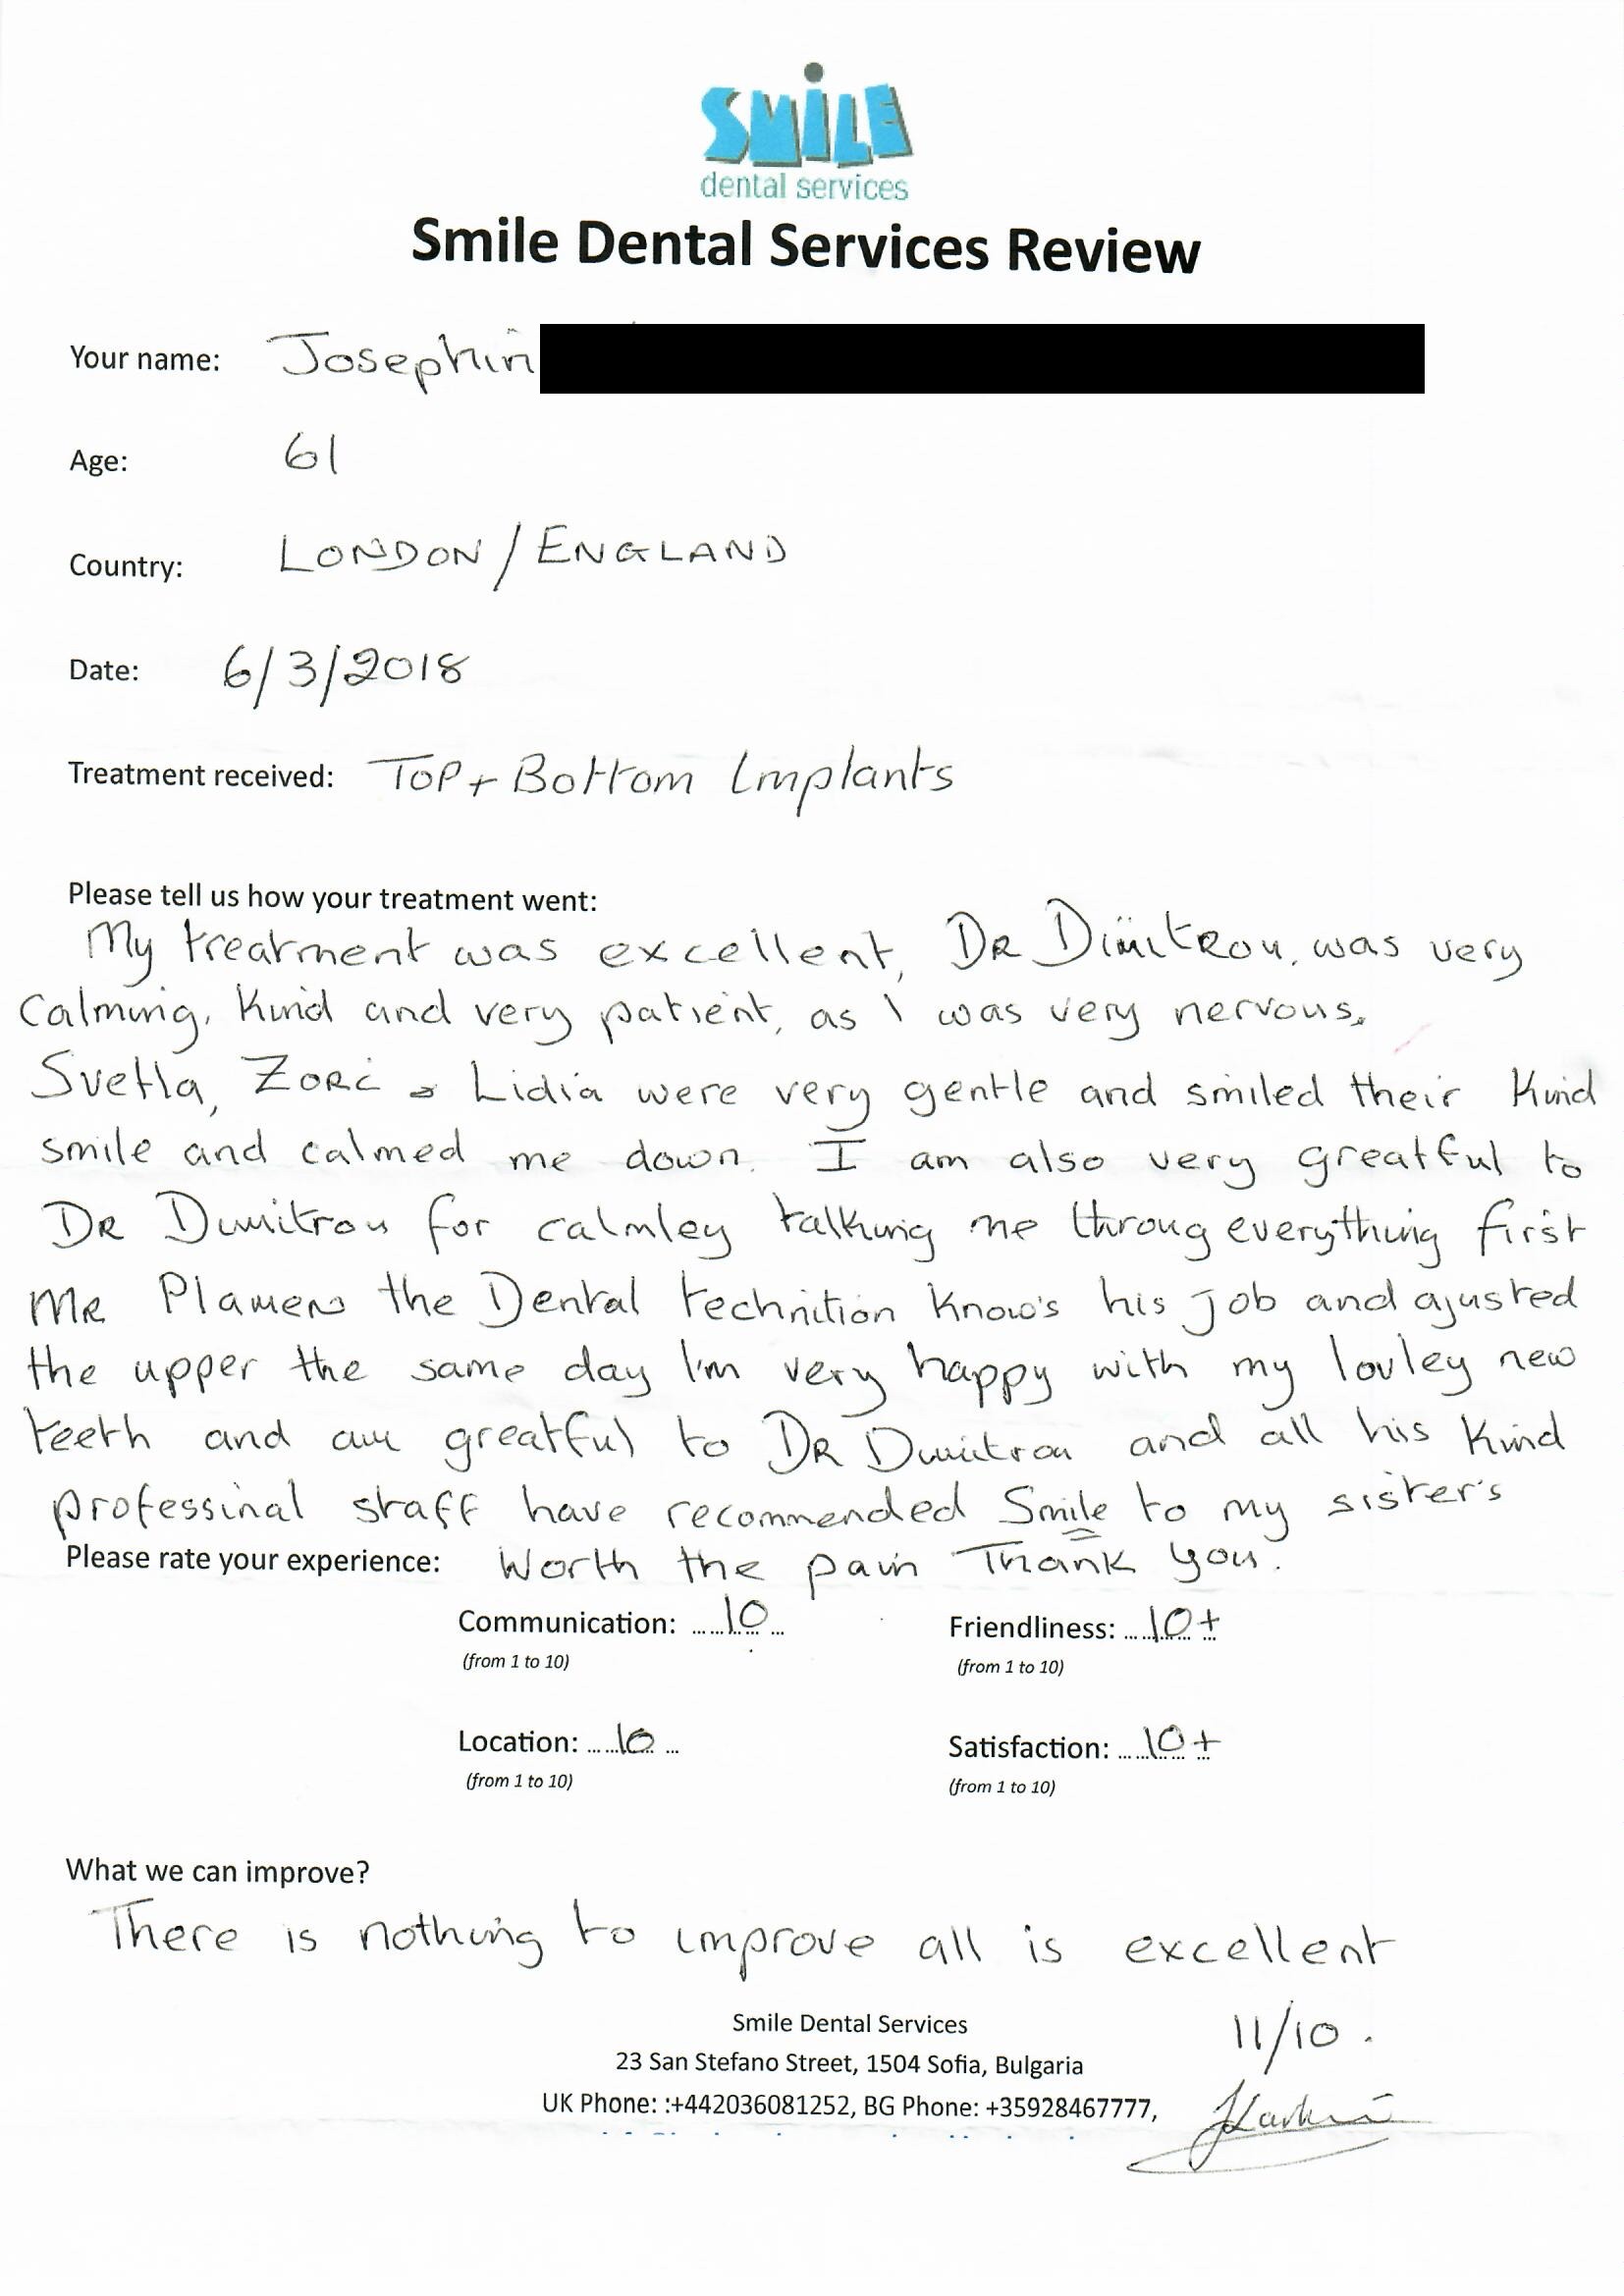 SMiLE
dental services
Smile Dental Services Review
Your name: Josephin
Age: 61
Country: LONDON / ENGLAND
Date: 6/3/2018
Treatment received: Top + Bottom Implants
Please tell us how your treatment went:
My treatment was excellent, DR Dimitrou, was very
Calming, Kind and very patient, as I was very nervous,
Svetla, Zori & Lidia were very gentle and smiled their Kind
smile and calmed me down. I am also very greatful to
DR Dimitrou for calmley talking me throug everything first
MR Plamen the Dental technition Know's his job and ajusted
the upper the same day I'm very happy with my lovley new
teeth and am greatful to DR Dimitrou and all his Kind
professinal staff have recommended Smile to my sister's
Please rate your experience: Worth the pain Thank you.
Communication: ...10... Friendliness: ...10+
(from 1 to 10) (from 1 to 10)
Location: ...10... Satisfaction: ...10+
(from 1 to 10) (from 1 to 10)
What we can improve?
There is nothing to improve all is excellent
Smile Dental Services 11/10.
23 San Stefano Street, 1504 Sofia, Bulgaria
UK Phone: :+442036081252, BG Phone: +35928467777,